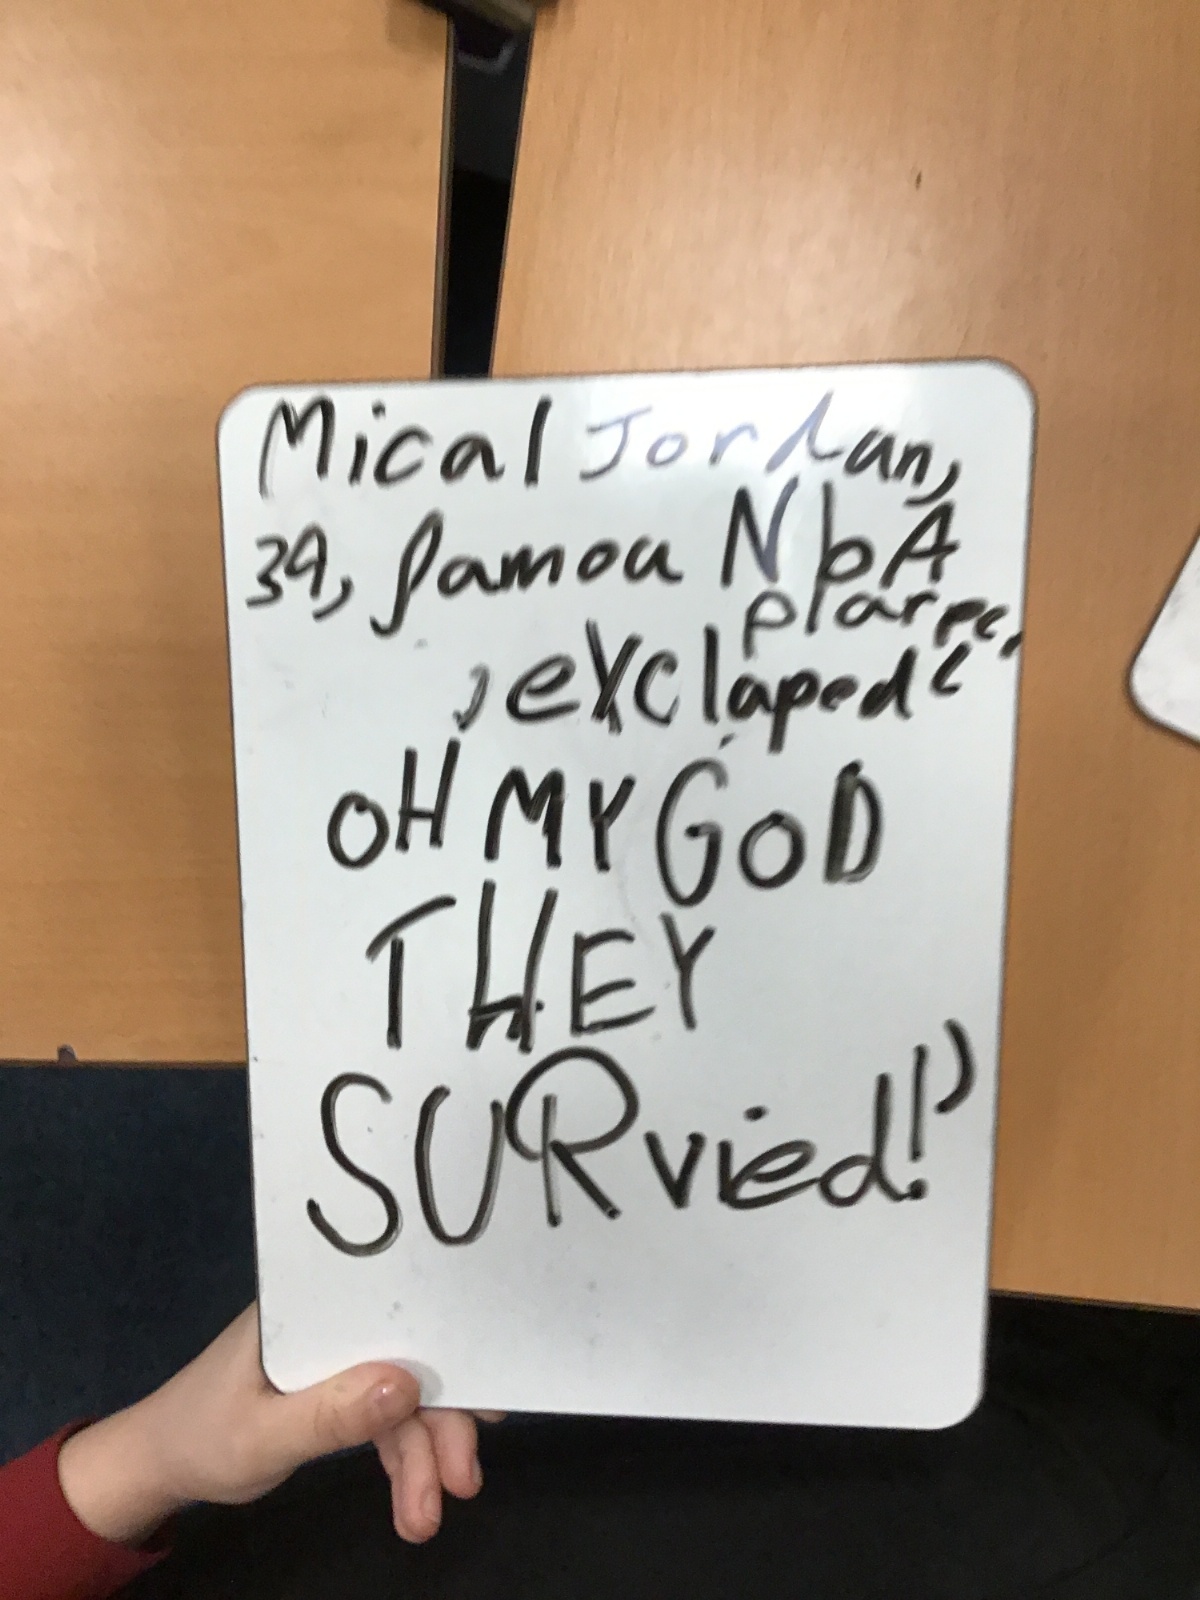 Mical Jordan,
39, famou NbA
plarec,
, exclaped "
OH MY GOD
THEY
SURvied!"